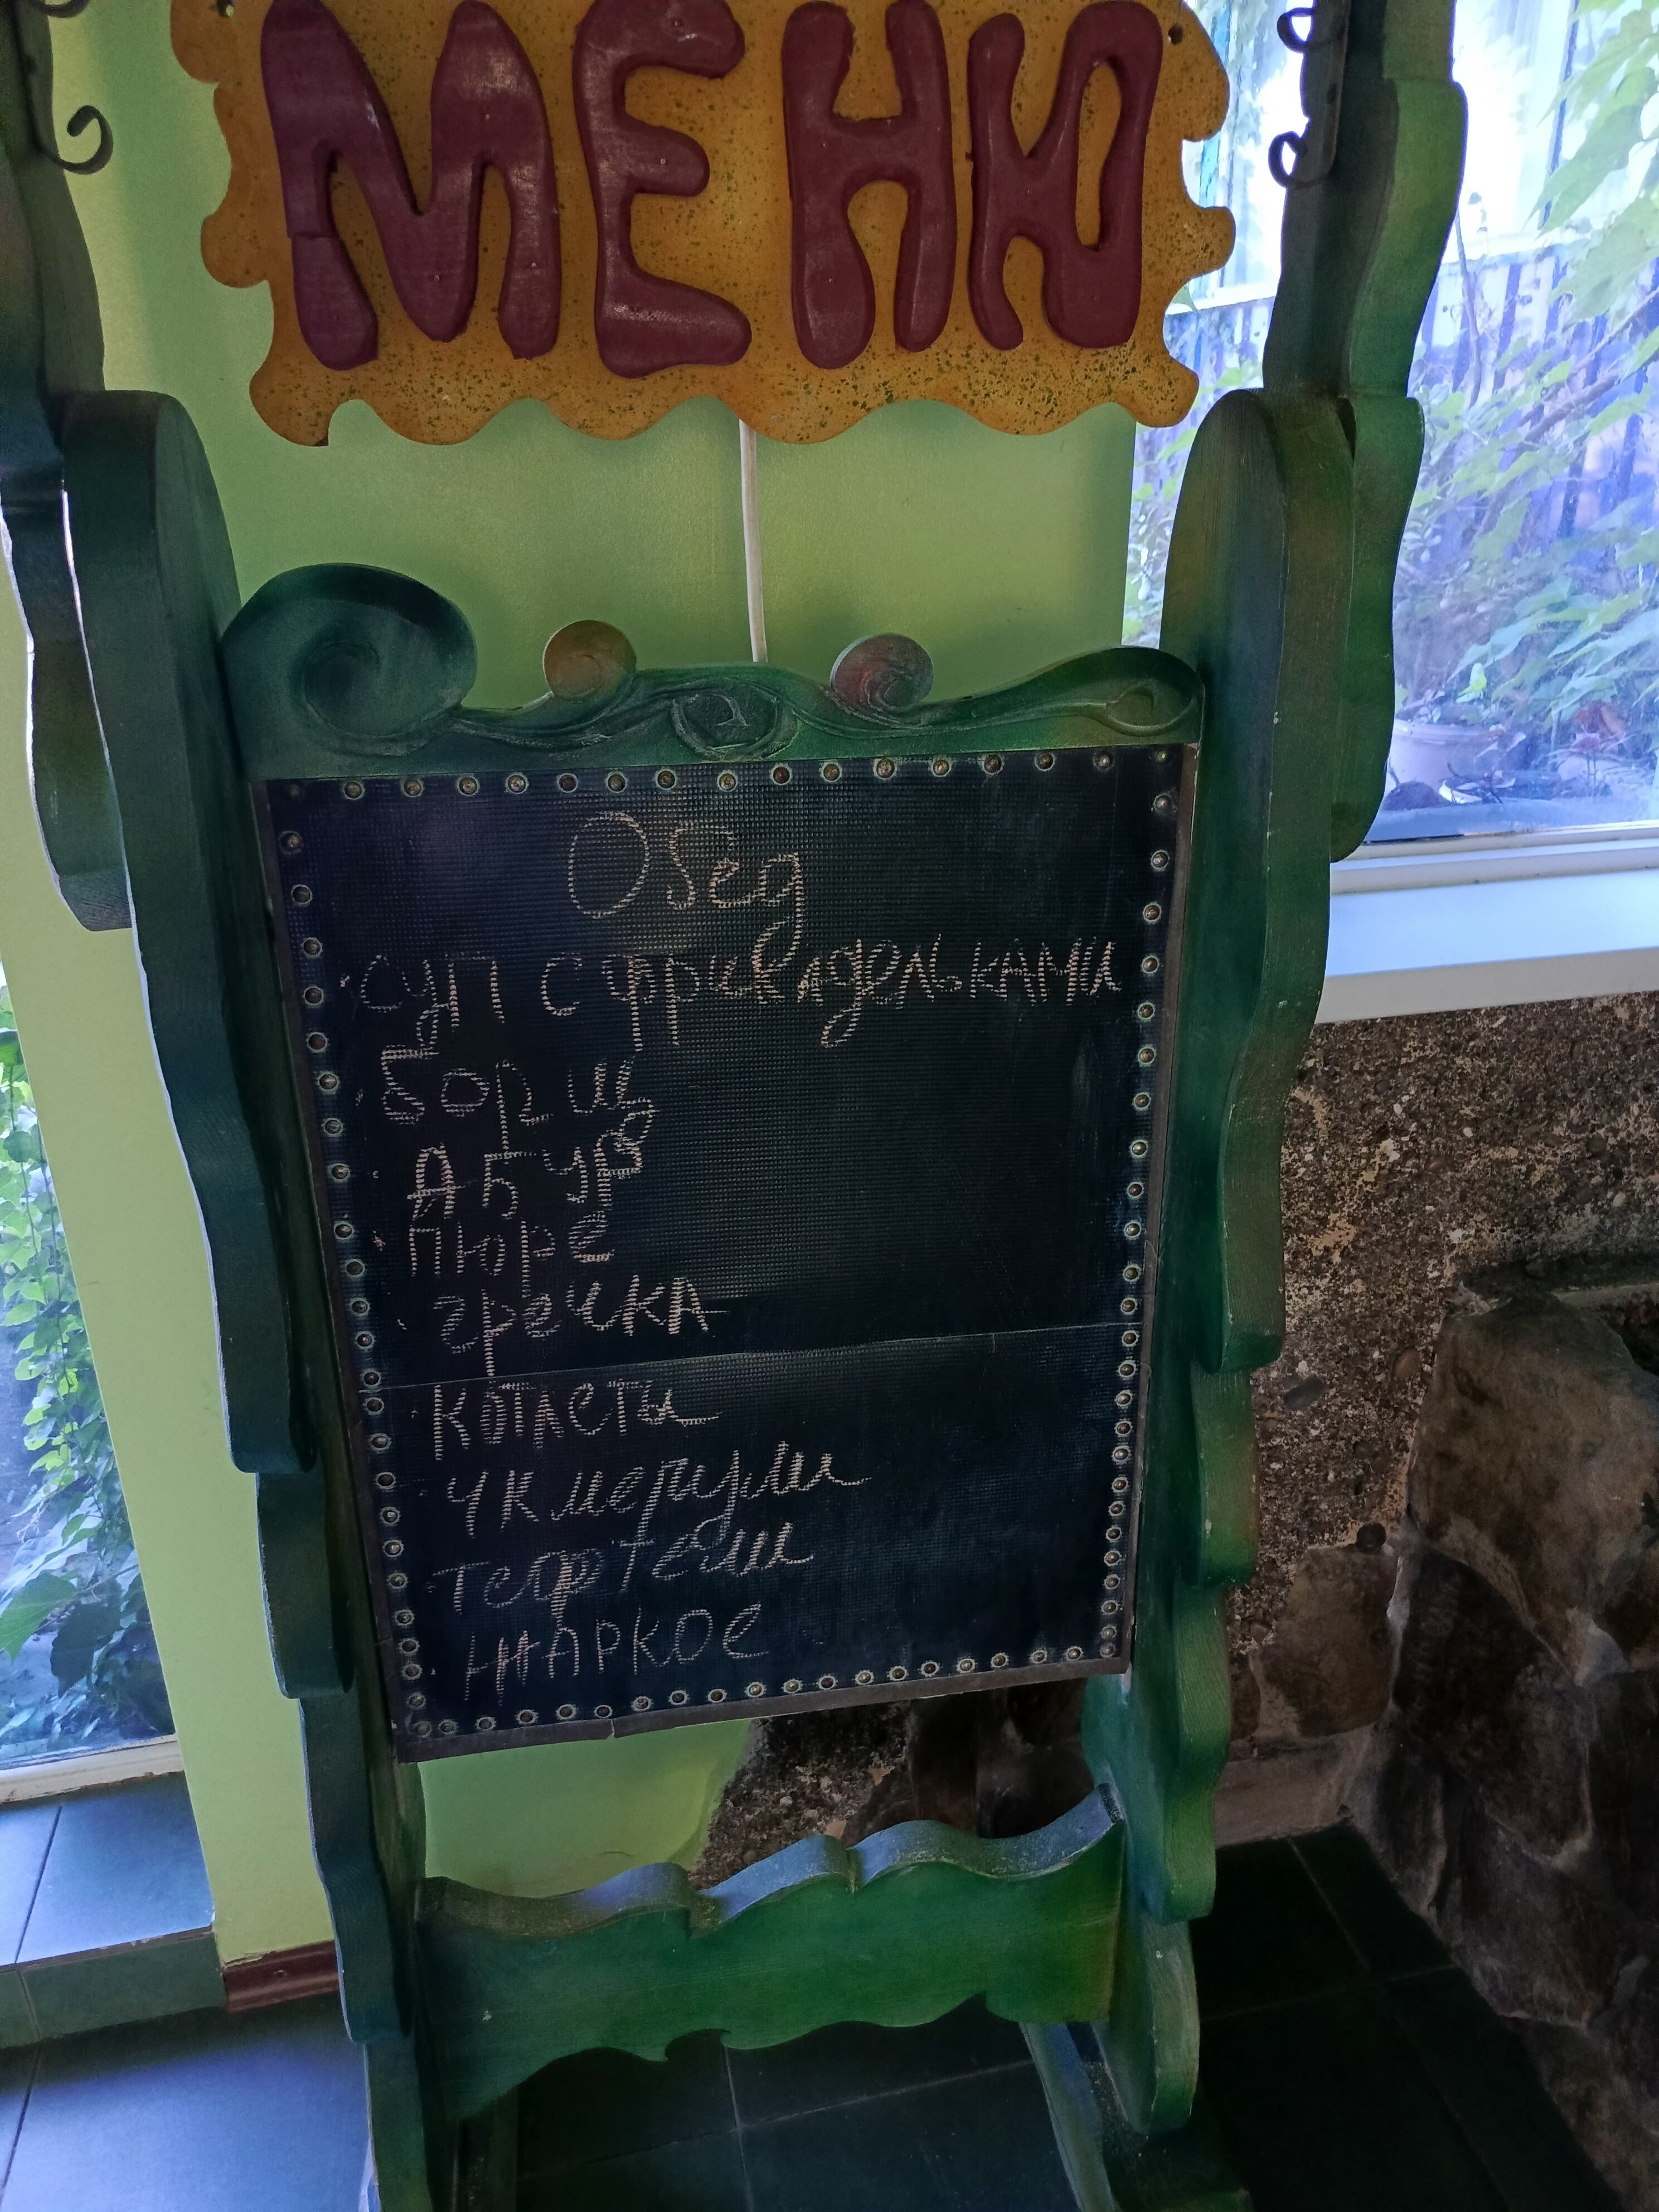 МЕНЮ
Обед
суп с фрикадельками
Борщ
АБУРВ
пюре
гречка
котлеты
чкмерули
тефтели
ЖАРКОЕ